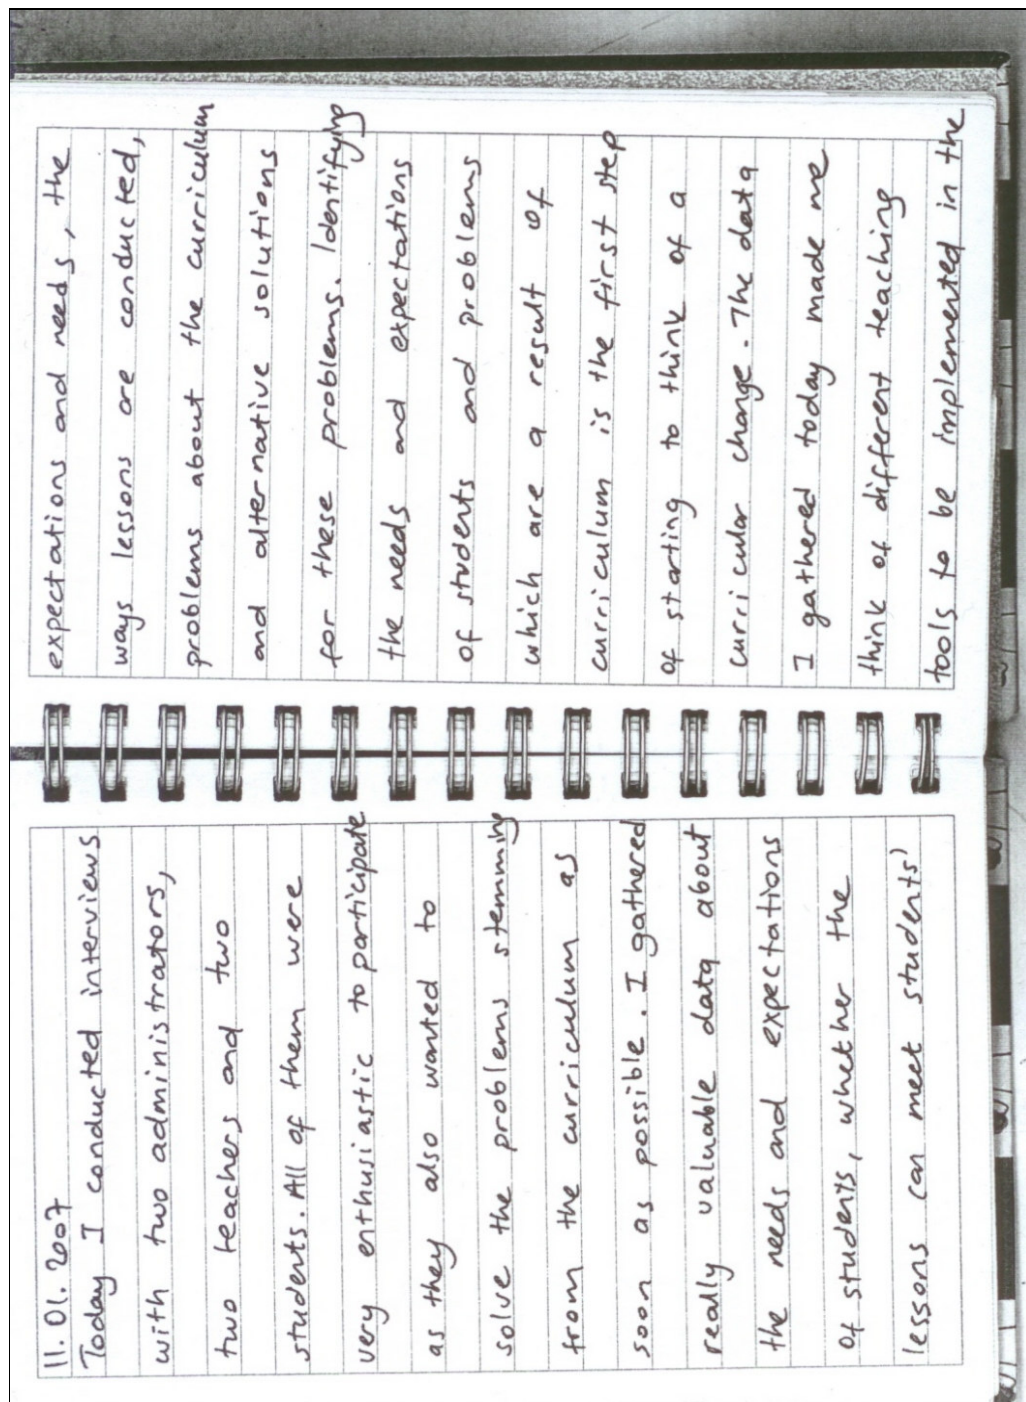 11.01.2007
Today I conducted interviews
with two administrators,
two teachers and two
students. All of them were
very enthusiastic to participate
as they also wanted to
solve the problems stemming
from the curriculum as
soon as possible. I gathered
really valuable data about
the needs and expectations
of students, whether the
lessons can meet students'
expectations and needs, the
ways lessons are conducted,
problems about the curriculum
and alternative solutions
for these problems. Identifying
the needs and expectations
of students and problems
which are a result of
curriculum is the first step
of starting to think of a
curricular change. The data
I gathered today made me
think of different teaching
tools to be implemented in the